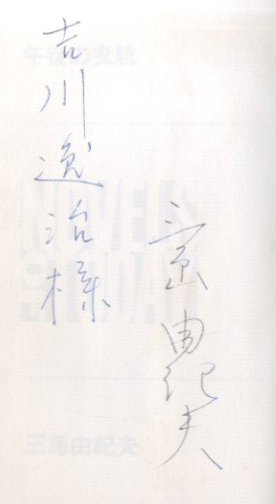 吉川逸治様
三島由紀夫
午後の曳航
三島由紀夫